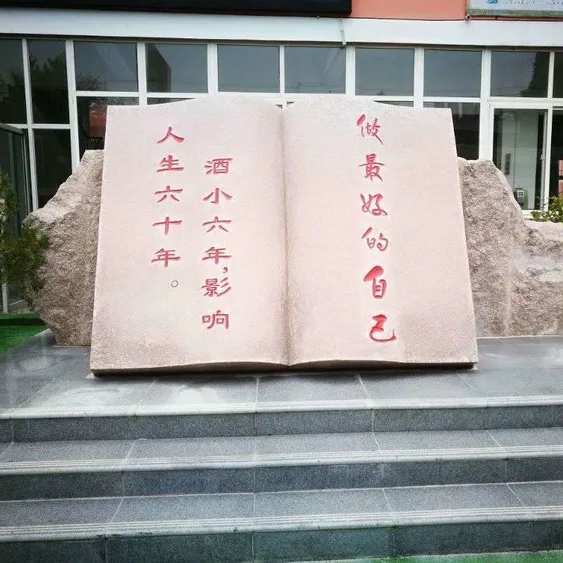 做最好的自己
酒小六年,影响
人生六十年。